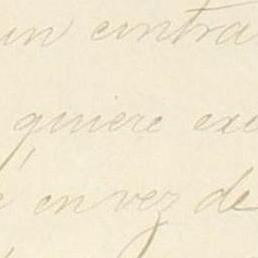 un contra
quiere exi
en vez de